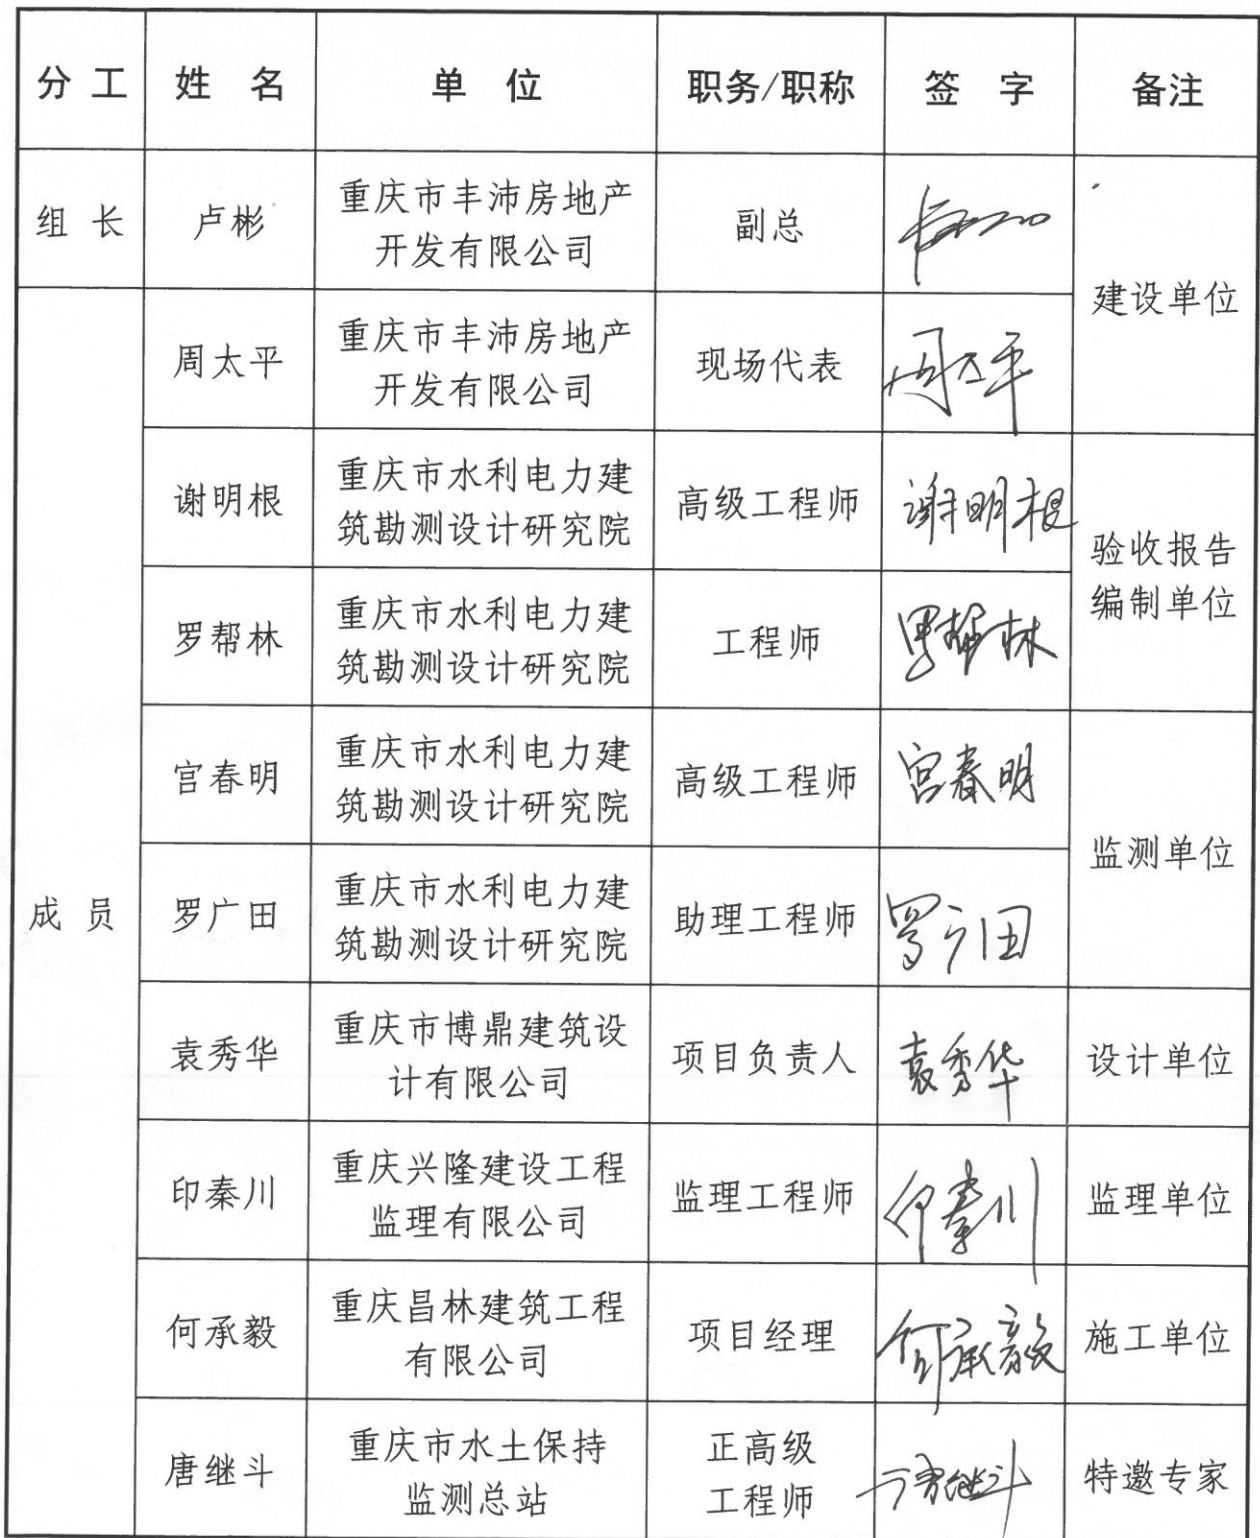 分工 姓名 单位 职务/职称 签字 备注
组长 卢彬 重庆市丰沛房地产
开发有限公司 副总
建设单位
周太平 重庆市丰沛房地产
开发有限公司 现场代表 周太平
谢明根 重庆市水利电力建
筑勘测设计研究院 高级工程师 谢明根
验收报告
编制单位
罗帮林 重庆市水利电力建
筑勘测设计研究院 工程师 罗帮林
宫春明 重庆市水利电力建
筑勘测设计研究院 高级工程师 宫春明
监测单位
成员 罗广田 重庆市水利电力建
筑勘测设计研究院 助理工程师 罗广田
袁秀华 重庆市博鼎建筑设
计有限公司 项目负责人 袁秀华 设计单位
印秦川 重庆兴隆建设工程
监理有限公司 监理工程师 印秦川 监理单位
何承毅 重庆昌林建筑工程
有限公司 项目经理 何承毅 施工单位
唐继斗 重庆市水土保持
监测总站 正高级
工程师 唐继斗 特邀专家